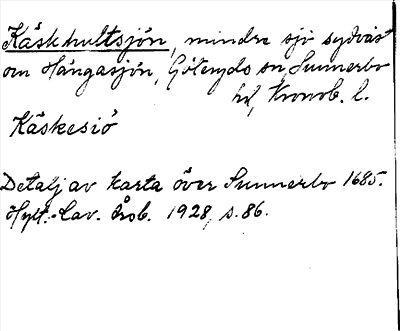 Käskhultsjön, mindre sjö sydväst
om Hängasjön, Göteryds sn, Sunnerbo
hd, Kronob. l.
Käskesiö
Detalj av karta över Sunnerbo 1685.
Hylt.-Cav. Årsb. 1928, s. 86.